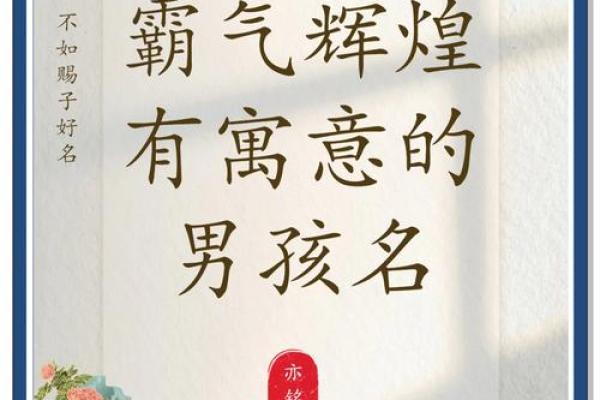 不如赐子好名
霸气辉煌
有寓意的
男孩名
亦铭